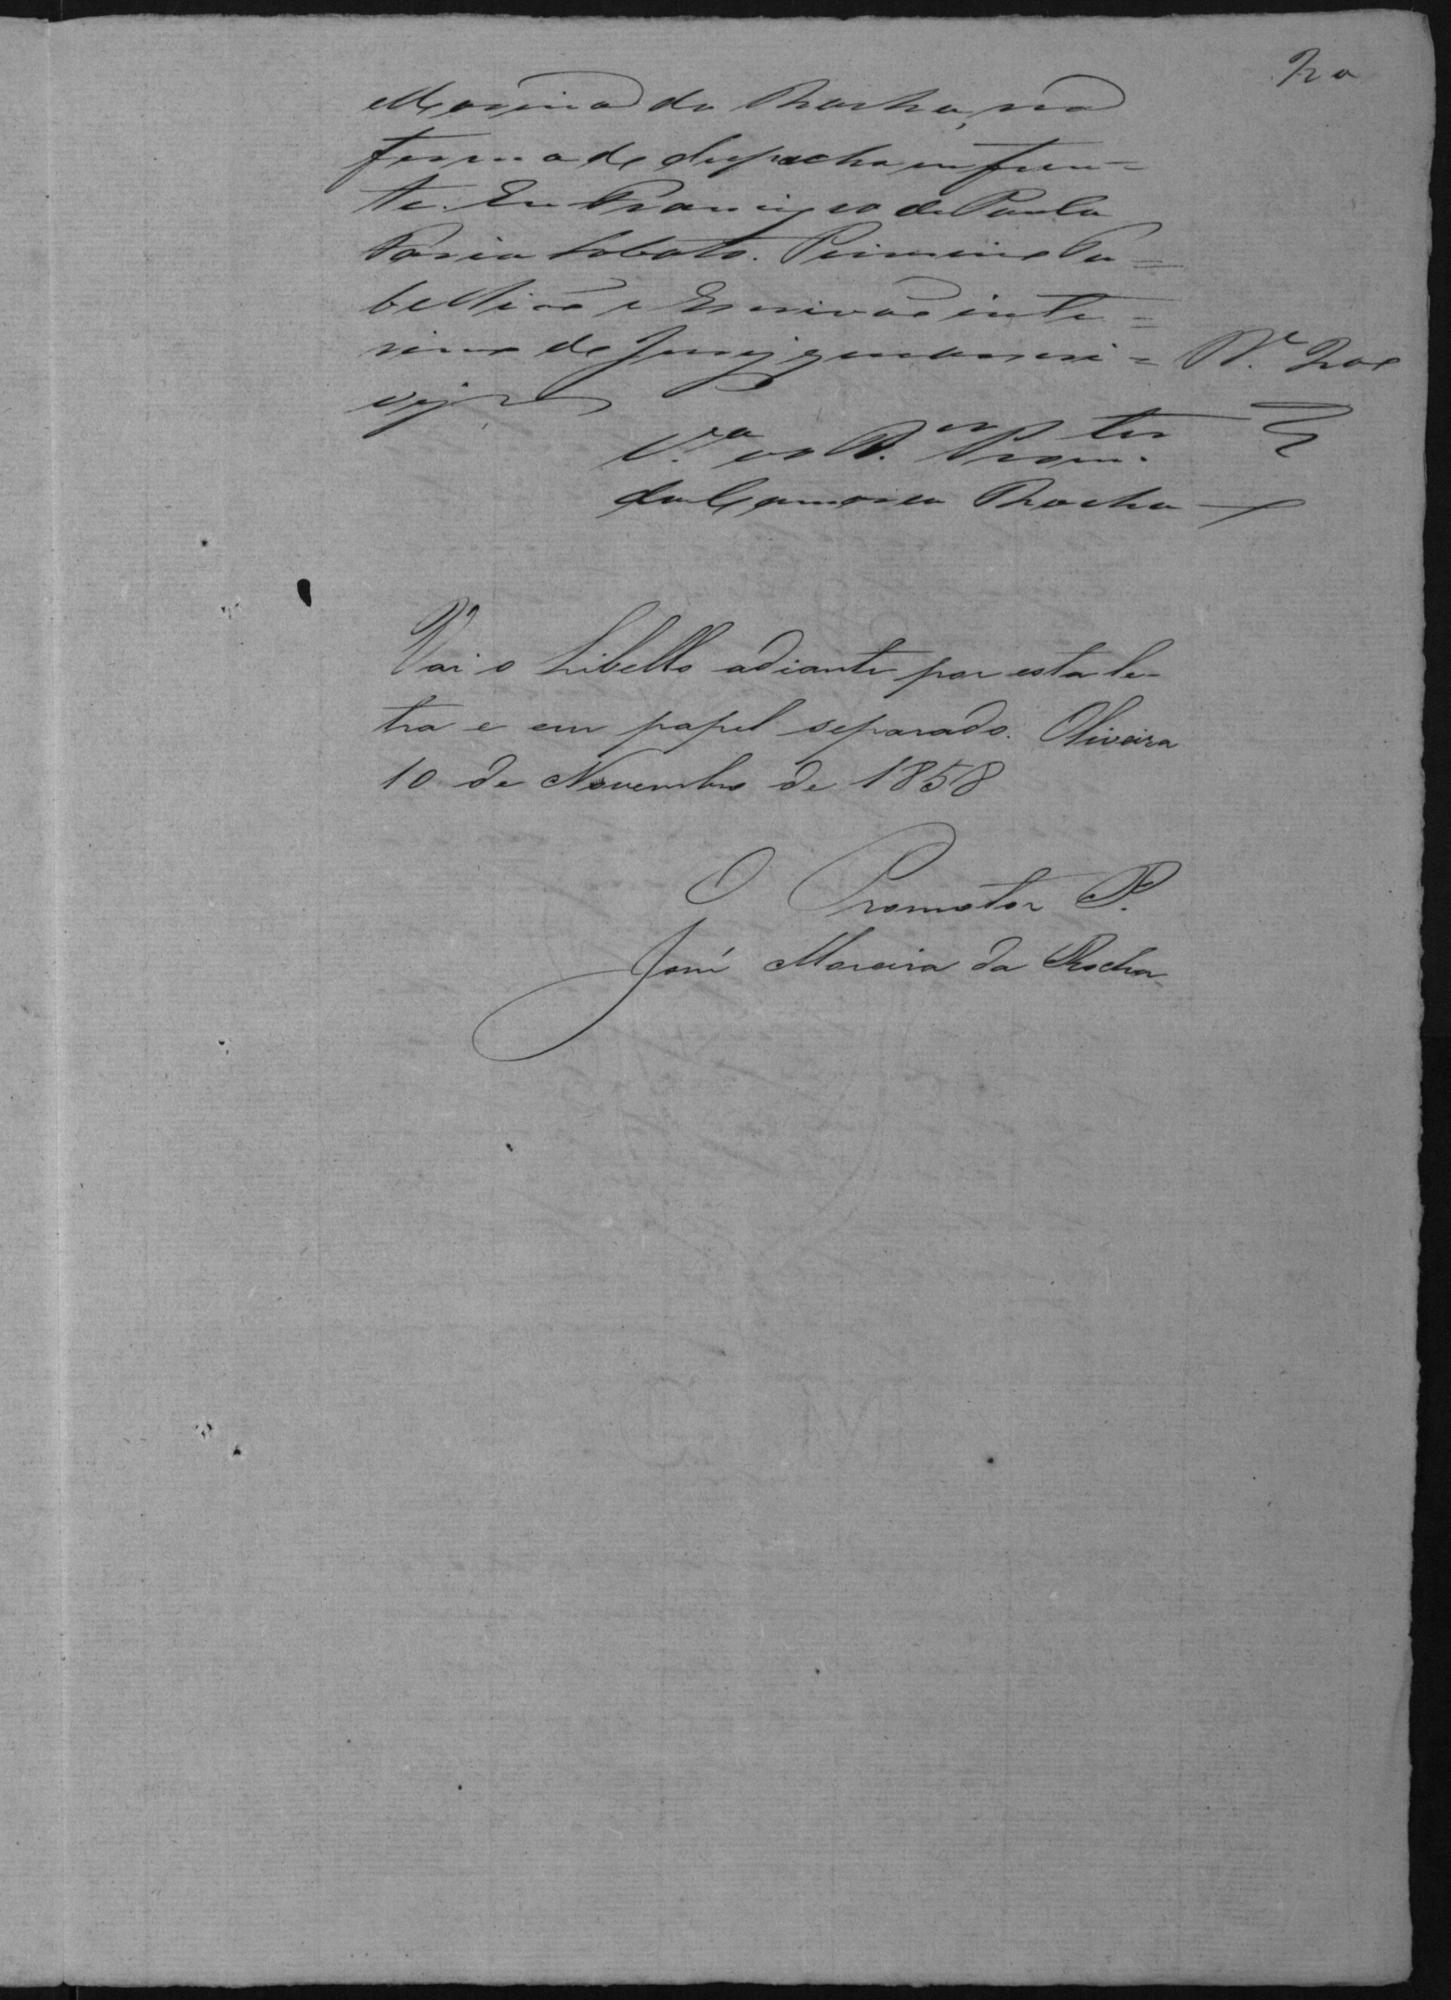 Moreira da Rocha, na
forma do despacho em fren-
te. Eu Francisco de Paula
Faria Lobato. Primeiro Ta-
bellião e Escrivão inte-
rino do Jury que o escre-
vi
V.ta ao D.or Prom.tor
da Comarca Rocha
Vai o Libello adiante por esta le-
tra e em papel separado. Oliveira
10 de Novembro de 1858
O Promotor P.
José Moreira da Rocha